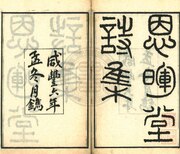 恩暉堂
詩集
咸豐六年
孟冬月鐫